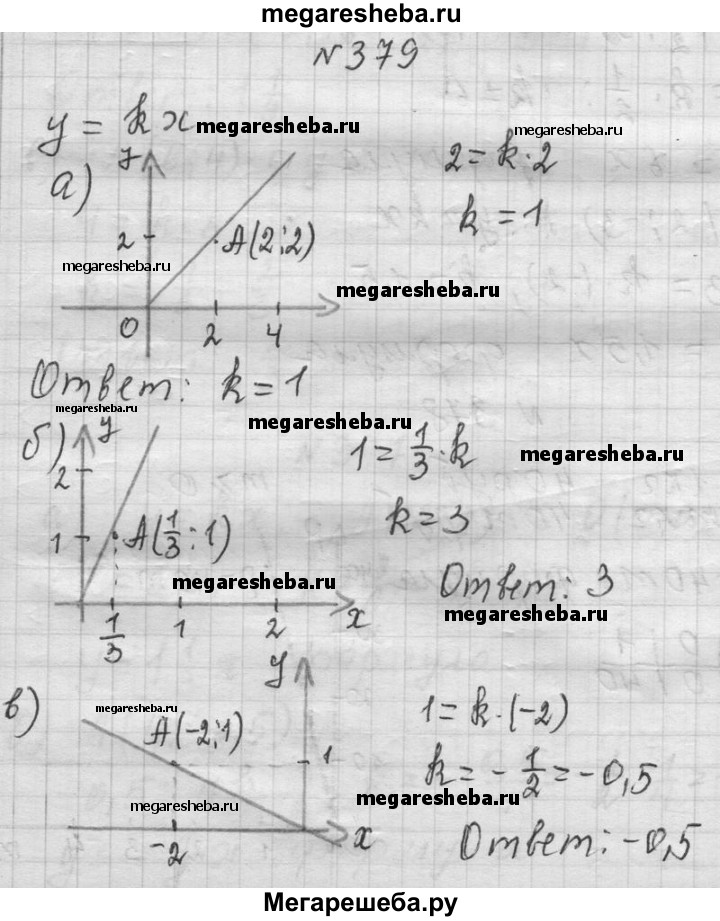 megaresheba.ru
№379
y = kx megaresheba.ru
megaresheba.ru
а) y
2 = k·2
k = 1
2
A(2;2)
megaresheba.ru
megaresheba.ru
0 2 4
Ответ: k = 1
megaresheba.ru
megaresheba.ru
б) y
1 = 1/3 · k megaresheba.ru
2
k = 3
1 A(1/3;1)
Ответ: 3
megaresheba.ru
megaresheba.ru
1/3 1 2 x
y
в)
megaresheba.ru
A(-2;1)
1 = k·(-2)
1
k = -1/2 = -0,5
megaresheba.ru
megaresheba.ru
-2 x
Ответ: -0,5
Мегарешеба.ру